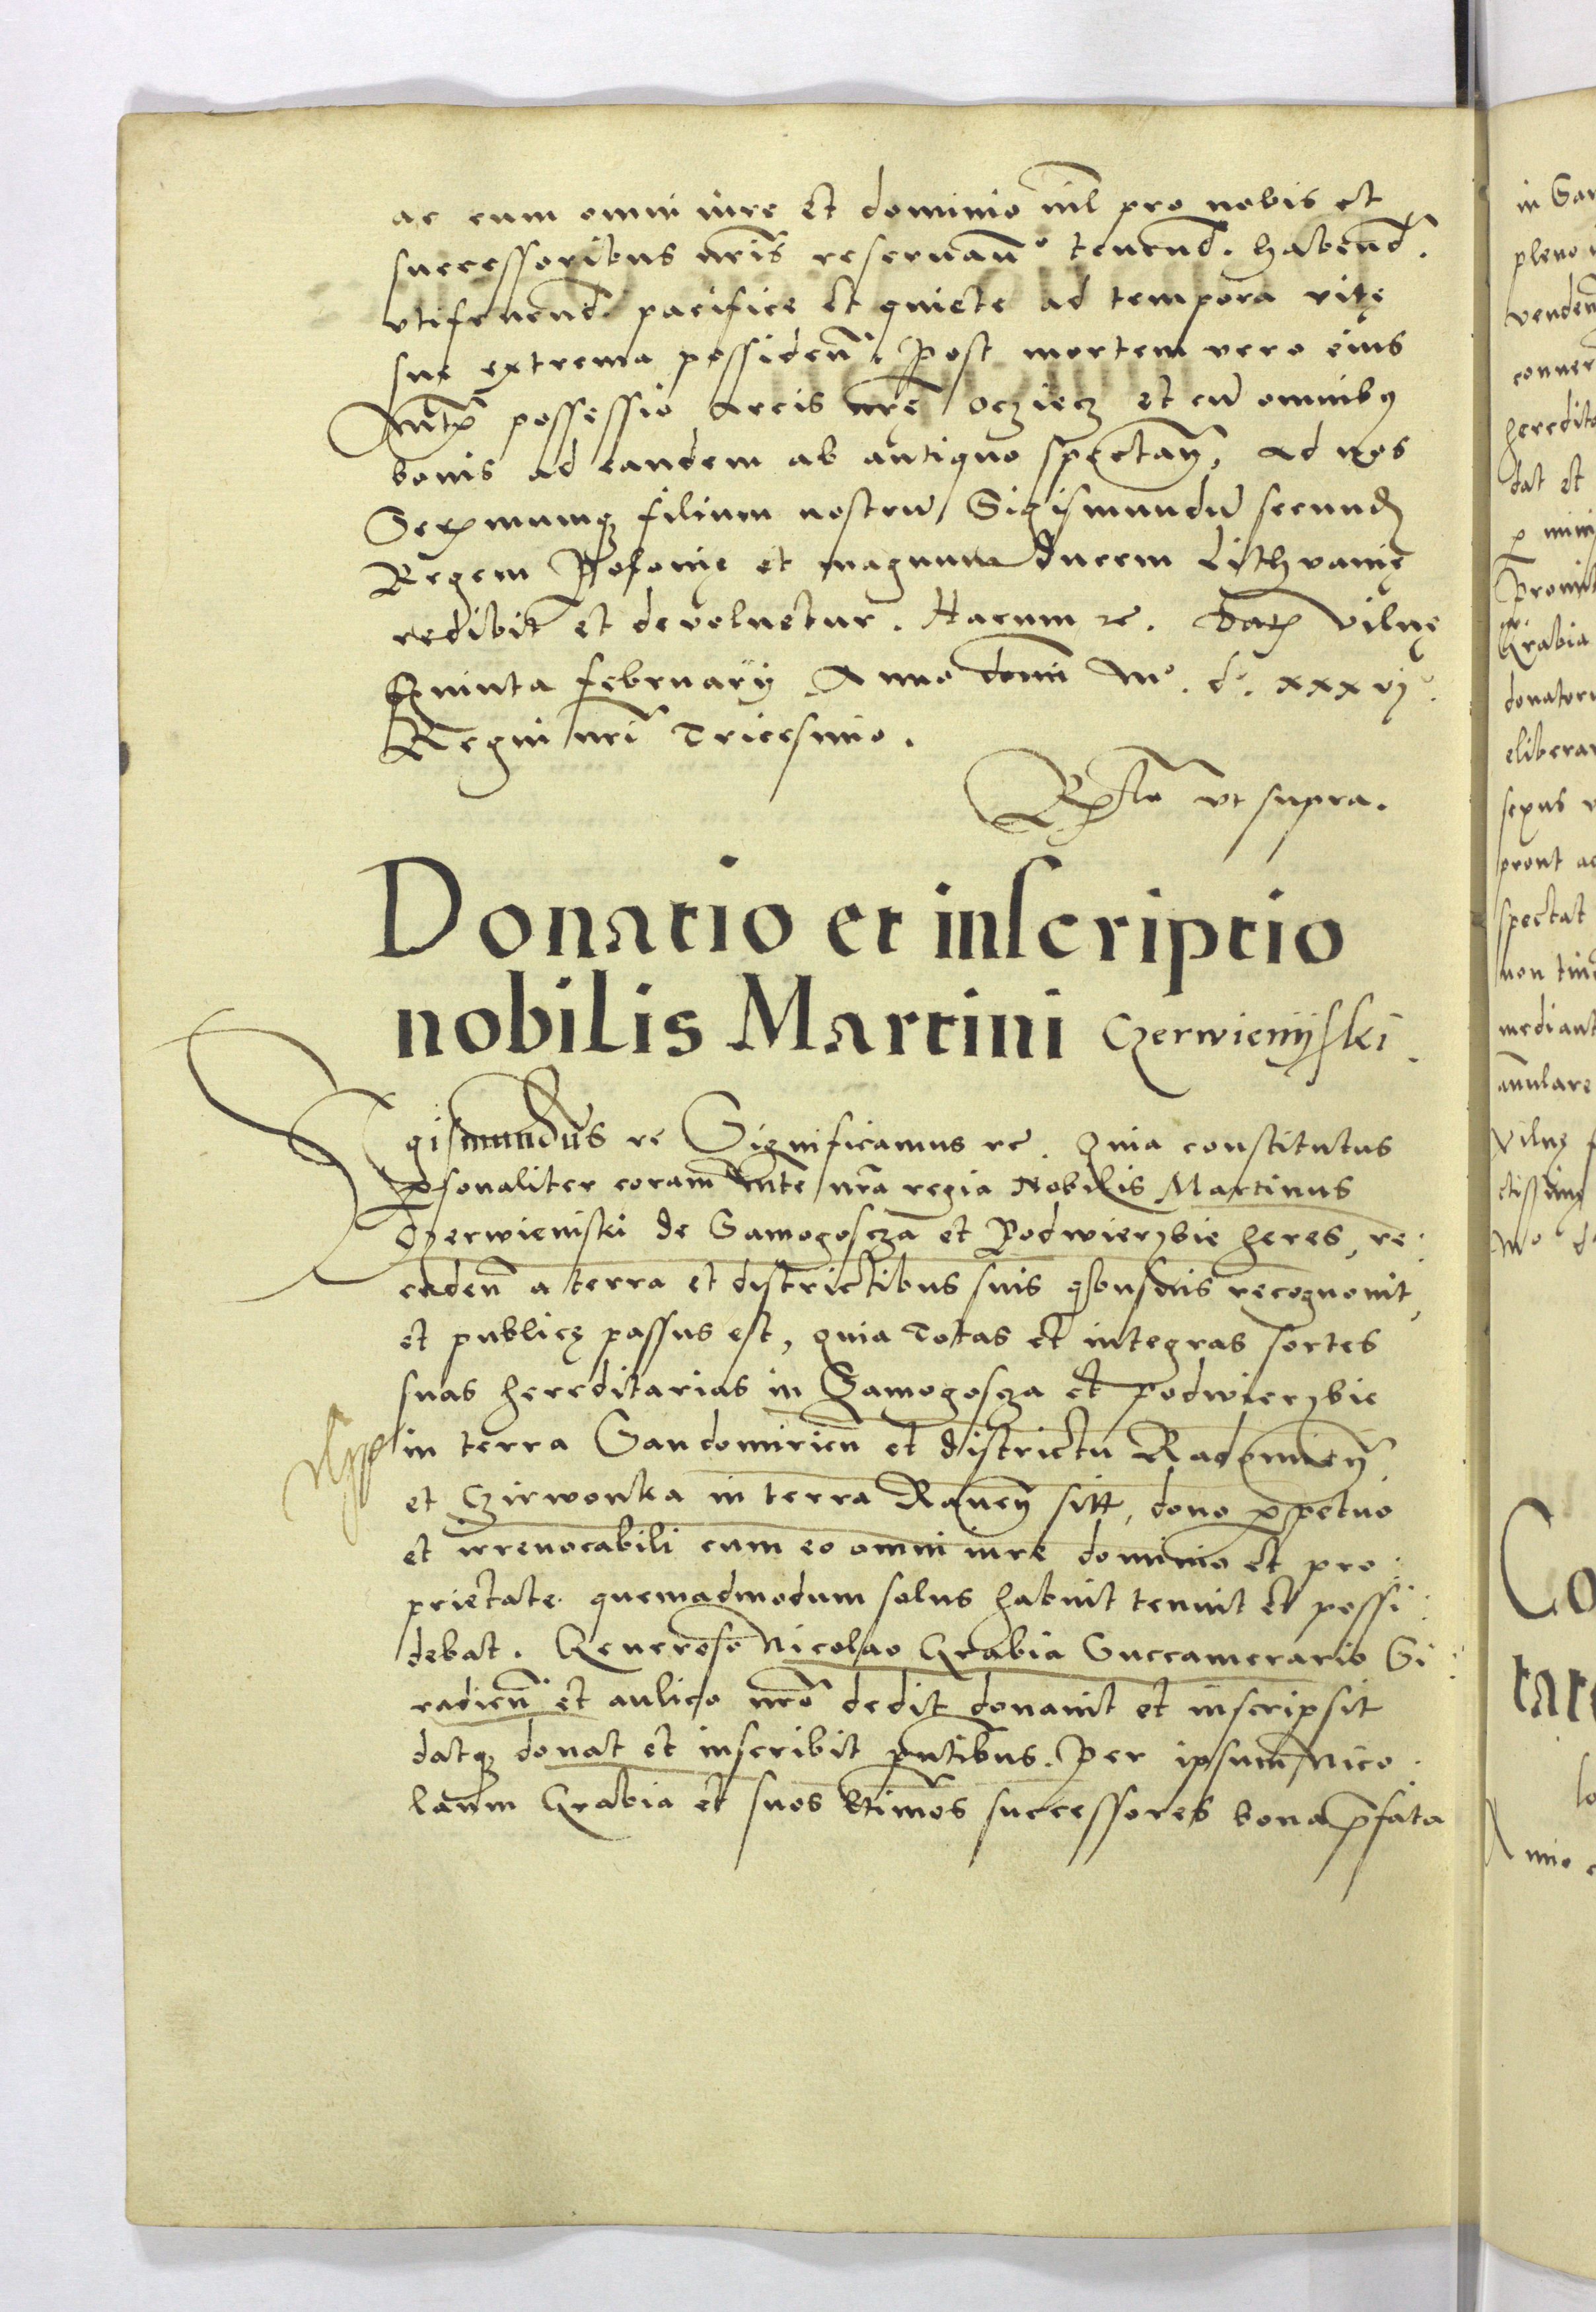 ac cum omni iure et dominio nil pro nobis et
successoribus nris reseruan. tenend. habend.
vtifruend. pacifice et quiete ad tempora vitę
suę extrema possiden. Post mortem vero eius
possessio arcis nrę Ocziecz et cu omnibus
bonis ad eandem ab antiquo spectan, ad nos
Sermumq filium nostru Sigismundu secund
Regem Polonię et magnum ducem Lithvanię
redibit et devoluetur. Harum rc. Dat Vilnę
Quinta februarij Anno domi Mo. do. xxxvjo.
Regni nri Tricesimo.
Rlo vt supra.
Donatio et inscriptio
nobilis Martini Czerwienÿski.
Sigismundus rc Significamus rc. Quia constitutus
psonaliter coram mte nra regia Nobilis Martinus
Czerwieniski de Samogoscza et Podwierzbie heres, re
ceden a terra et districtibus suis recognouit
et publicę passus est, quia Totas et integras sortes
suas hereditarias in Samogoscza et podwierzbie
in terra Sandomirien et districtu Radomien
et Czirwonka in terra Raven sitt, dono ppetuo
et irreuocabili cum eo omni iure dominio et pro
prietate quemadmodum solus habuit tenuit et possi
debat. Generoso Nicolao Grabia Succamerario Si
radien et aulico nro dedit donauit et inscripsit
datq donat et inscribit pntibus. Per ipsum Nico
laum Grabia et suos ltimos successores bona pfata